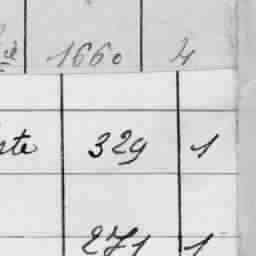 1660 4
ste 329 1
271 1